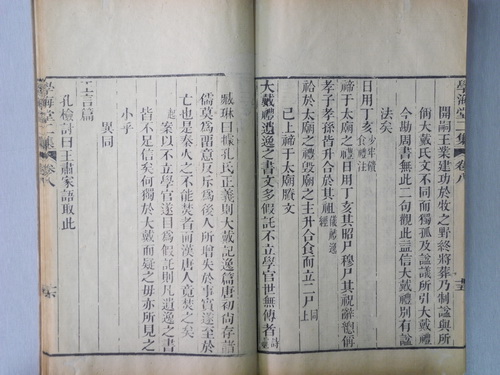 學海堂二集 卷八
開嗣王業建功於牧之野終將葬乃制諡與所
偁大戴氏文不同而獨孤及諡議所引大戴禮
今勘周書無此二句觀此益信大戴禮別有諡
法矣
日用丁亥 少牢饋食禮注
禘于太廟之禮日用丁亥其昭尸穆尸其祝辭總偁
孝子孝孫皆升合於其祖
祫於太廟之禮毀廟之主升合食而立二尸 同上
已上禘于太廟賸文
大戴禮遺逸之書文多假託不立學官世無傳者
臧琳曰據孔氏正義則大戴記逸篇唐初尚存諸
儒莫爲謂意反斥爲後人所增失於事實遂至於
亡也是秦火之不能焚者前漢唐人竟焚之矣
案以不立學官遂目爲假託則凡遺逸之書
皆不足信矣何獨於大戴而疑之毋亦所見之
小乎
異同
王言篇
孔檢討曰王肅家語取此
學海堂二集 卷八